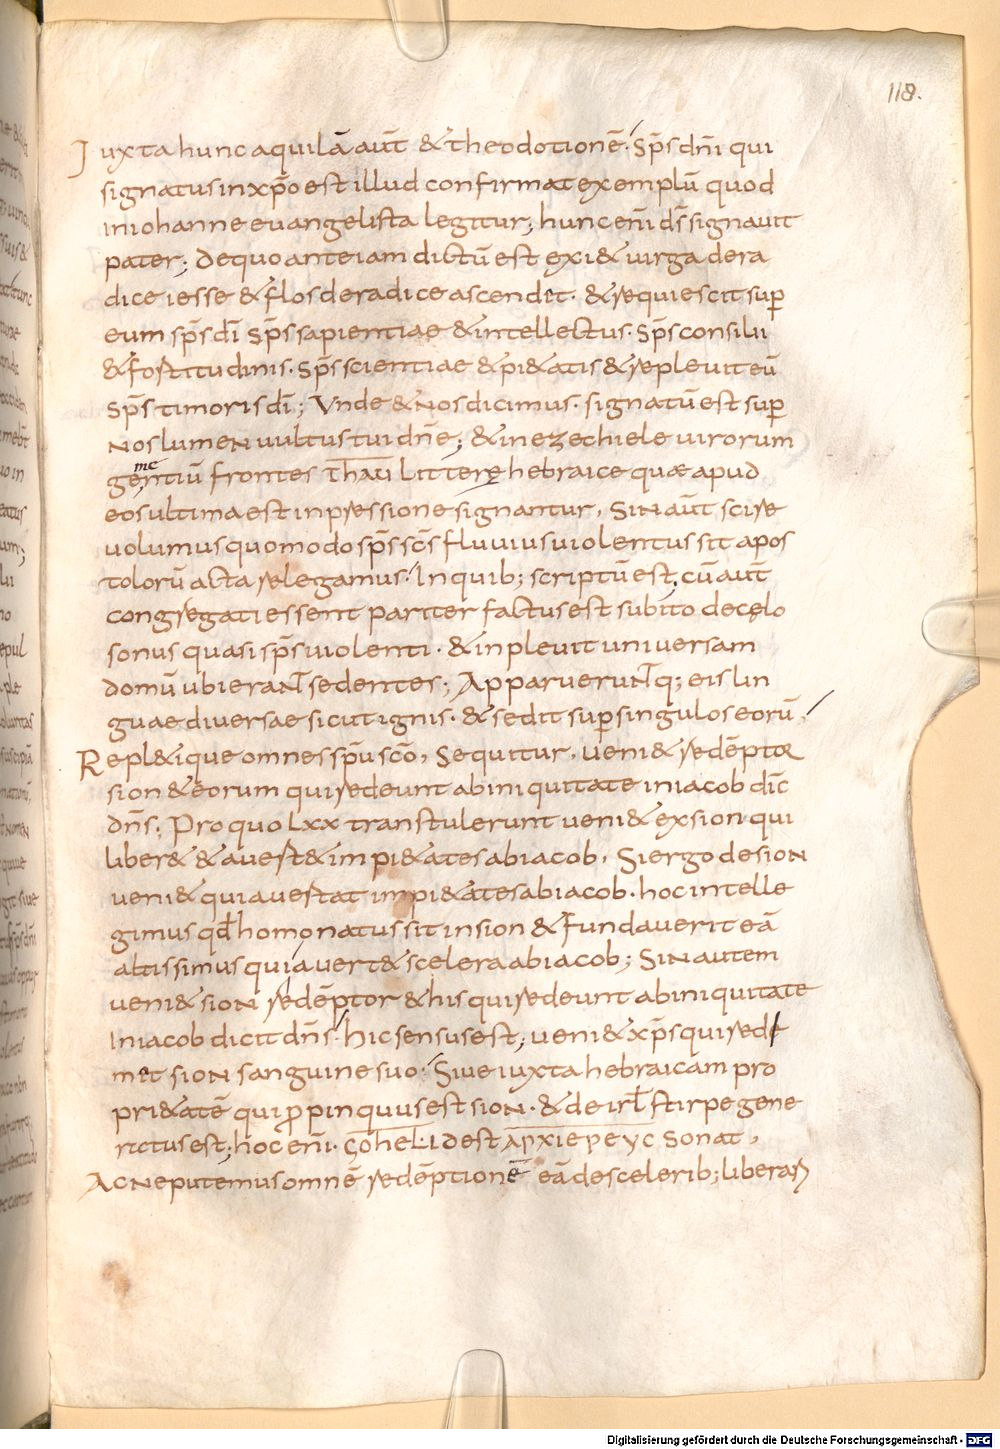 118.
Iuxta hunc aquilā aūt & theodotionē. Sp̄s dn̄i qui
signatus in xp̄o est illud confirmat exemplū quod
in iohanne euangelista legitur; hunc en̄i ds̄ signauit
pater; de quo ante iam dictū est exi& uirga de ra
dice iesse & flos de radice ascendet. & requiescit sup̄
eum sp̄s dī sp̄s sapientiae & intellectus. sp̄s consilii
& fortitudinis. sp̄s scientiae & pi&atis & repleuit eū
sp̄s timoris dī; Vnde & nos dicimus. signatū est sup̄
nos lumen uultus tui dn̄e; & in ezechiele uirorum
gementiū frontes thau litterę hebraice quae apud
eos ultima est inpressione signantur, Sin aūt scire
uolumus quomodo sp̄s sc̄s fluuius uiolentus sit apos
tolorū acta relegamus. In quib; scriptū est, cū aūt
congregati essent pariter factus est subito de cęlo
sonus quasi sp̄s uiolenti. & inpleuit universam
domū ubi erant sedentes; Apparuerunt q; eis lin
guae diuersae sicut ignis. & sedit sup singulos eorū,
Repl&ique omnes sp̄u sc̄o, Sequitur, ueni& redēptor
sion & eorum qui redeunt ab iniquitate in iacob dīc
dn̄s; Pro quo lxx transtulerunt ueni& ex sion qui
liber& & auert& impi&ates ab iacob, Si ergo de sion
ueni& qui auertat impi&ates ab iacob. hoc intelle
gimus qd̄ homo natus sit in sion & fundauerit eā
altissimus qui auert& scelera ab iacob; Sin autem
ueni& sion redēptor & his qui redeunt ab iniquitate
in iacob dicit dn̄s. hic sensus est; ueni& xp̄s qui rede
met sion sanguine suo. Siue iuxta hebraicam pro
pri&atē qui ꝓpinquus est sion. & de irl̄ stirpe gene
ratus est; hoc en̄i. gohel. id est ἀρχιερεγς sonat,
Ac ne putemus omnē redēptionē eā de scelerib; liberari
Digitalisierung gefördert durch die Deutsche Forschungsgemeinschaft - DFG